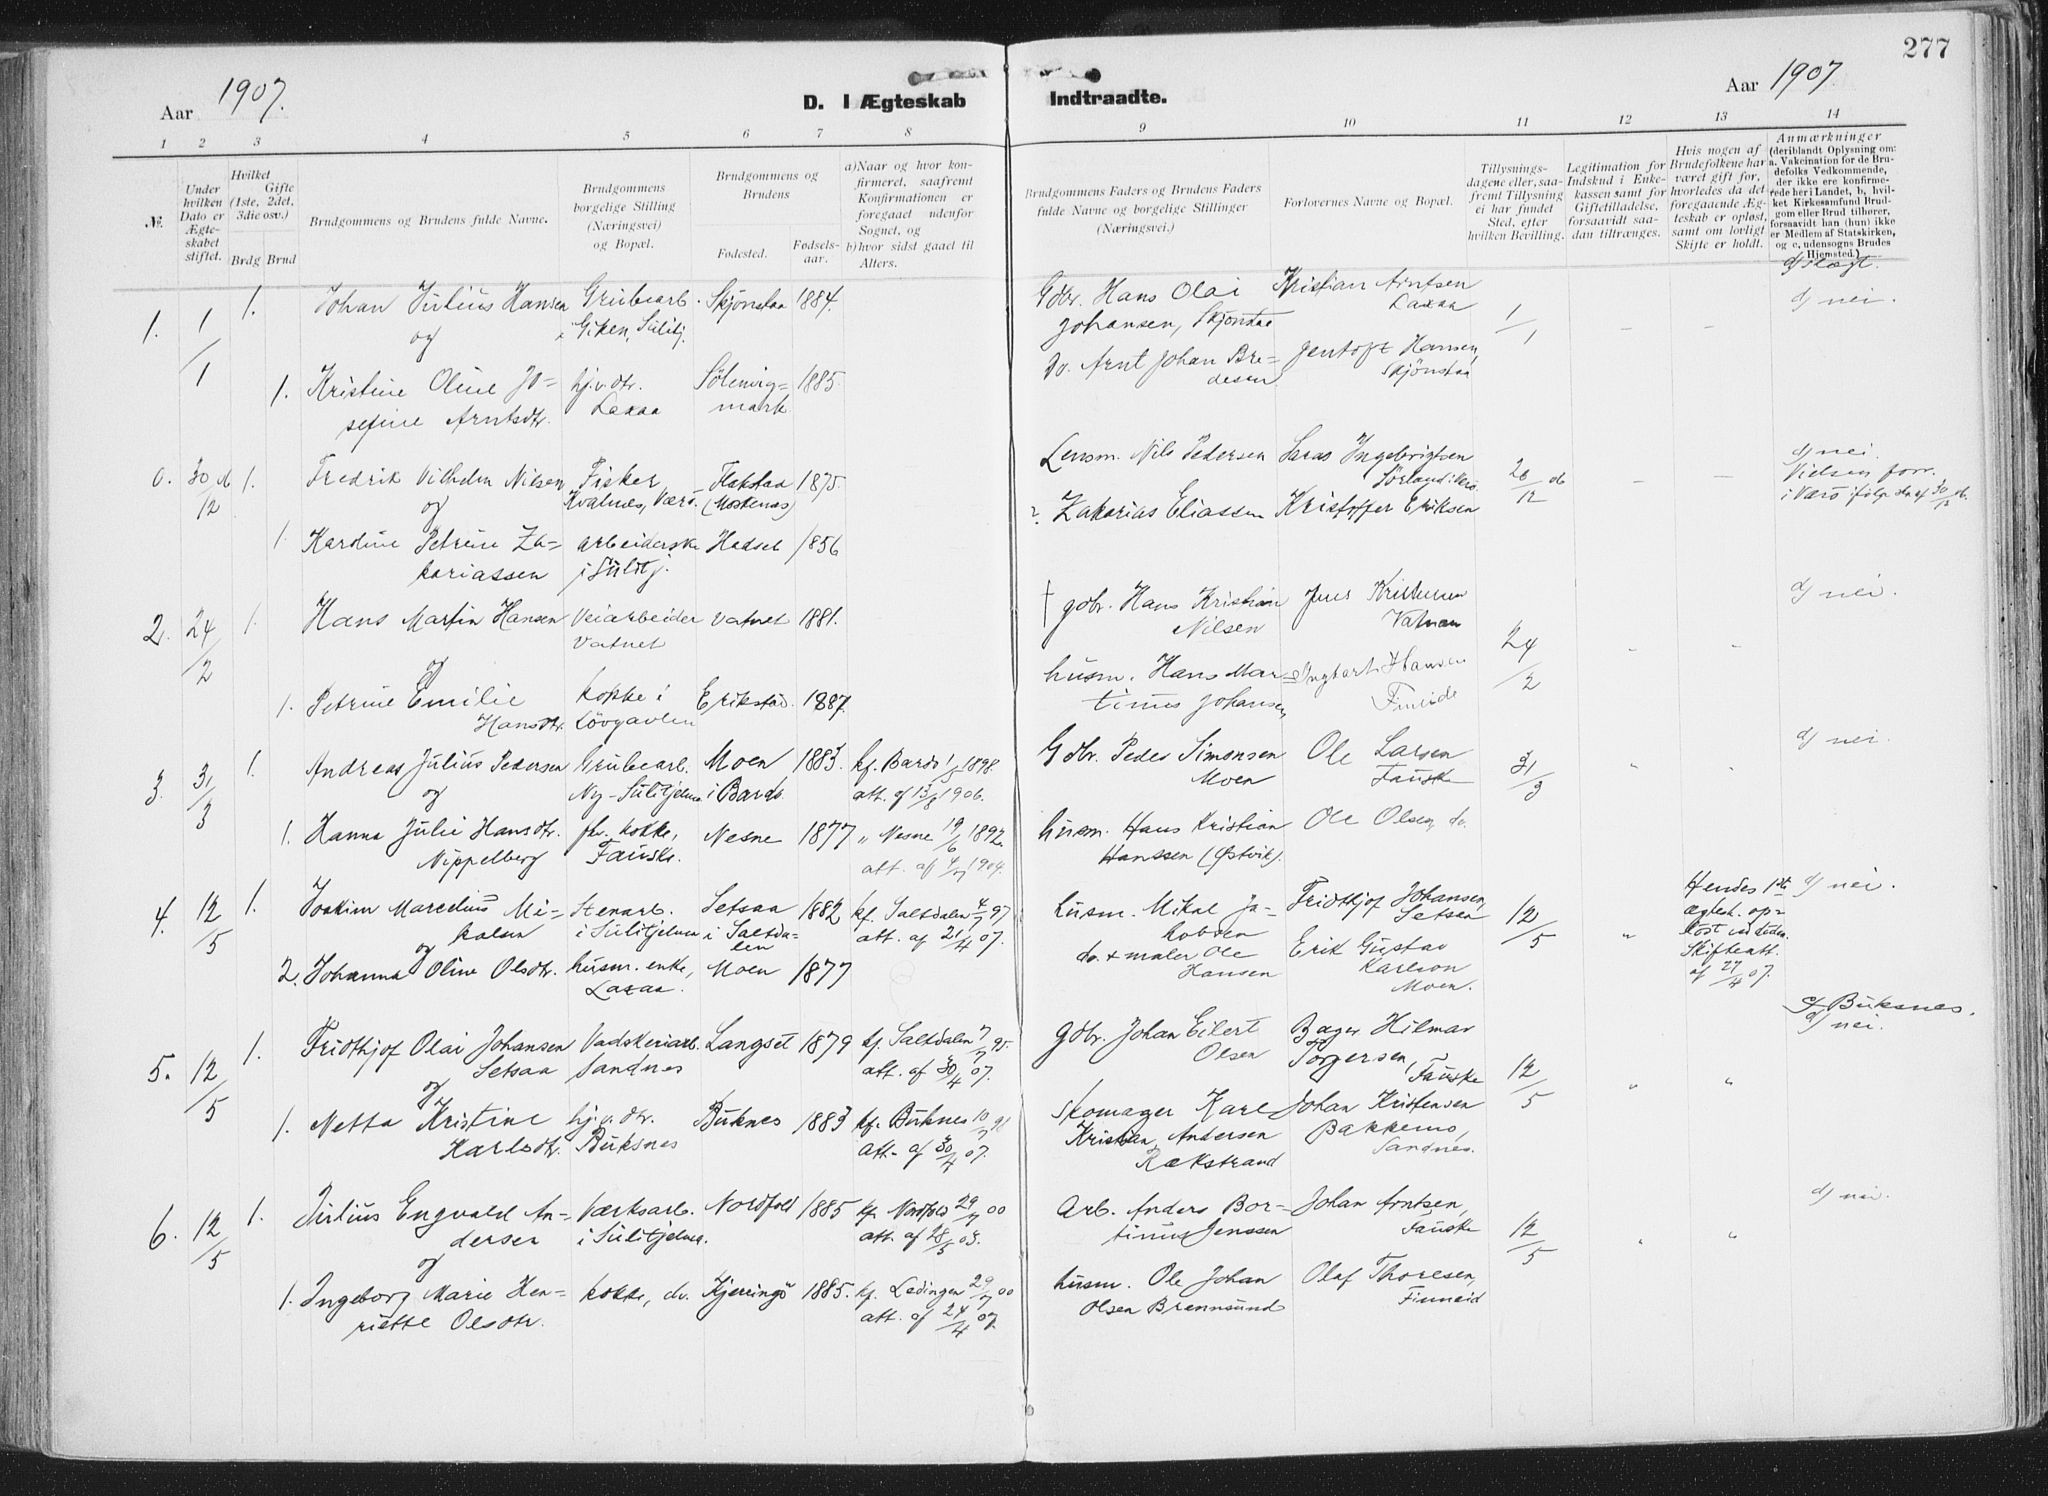 277
Aar 1907.
D. I Ægteskab Indtraadte.
Aar 1907.
1 2 3 4 5 6 7 8 9 10 11 12 13 14
№.
Under
hvilken
Dato er
Ægte-
skabet
stiftet.
Hvilket
Gifte
(1ste, 2det,
3die osv.)
Brdg Brud
Brudgommens og Brudens fulde Navne.
Brudgommens
borgelige Stilling
(Næringsvei)
og Bopæl.
Brudgommens og
Brudens
Fødested.
Fødsels-
aar.
a) Naar og hvor kon-
firmeret, saafremt
Konfirmationen er
foregaaet udenfor
Sognet, og
b) hvor sidst gaaet til
Alters.
Brudgommens Faders og Brudens Faders
fulde Navne og borgelige Stillinger
(Næringsvei)
Forlovernes Navne og Bopæl.
Tillysnings-
dagene eller, saa-
fremt Tillysning
ei har fundet
Sted, efter
hvilken Bevilling.
Legitimation for
Indskud i Enke-
kassen samt for
Giftetilladelse,
forsaavidt saa-
dan tiltrænges.
Hvis nogen af
Brudefolkene har
været gift før,
hvorledes da det
foregaaende Æg-
teskab er opløst,
samt om lovligt
Skifte er holdt.
Anmærkninger
(deriblandt Oplysning om:
a. Vakcination for de Bru-
defolks Vedkommende,
der ikke ere konfirme-
rede her i Landet, b, hvil-
ket Kirkesamfund Brud-
gom eller Brud tilhører,
forsaavidt han (hun) ikke
er Medlem af Statskirken,
og c, udensogns Brudes
Hjemsted.)
1. 1/1 1. Johan Julius Hansen Grubearb. Skjønstaa 1884. Gdbr. Hans Olai Kristian Arntsen 1/1 – – d) nei.
og i Giken, Sulitj. Johansen, Skjønstaa Laxaa
1. Kristine Oline Jo- hj.v.dtr. Sölenvig- 1885. Do. Arnt Johan Bre- Jentoft Hansen,
sefine Arntsdtr. Laxaa mark desen Skjönstaa
0. 30/12 1. Fredrik Vilhelm Nilsen Fisker, Flakstaa 1875. Lensm. Nils Pedersen Saras Ingebrigtsen 26/12 – – d) nei.
og Kvalnes, Værö. (Moskenes) Sörland i Værö Vielsen forr.
i Værö ifölge
1. Kardine Petrine Za- arbeiderske Hadsel 1856 Zakarias Eliassen Kristoffer Eriksen
kariassen i Sulitj.
2. 24/2 1. Hans Martin Hansen Veiarbeider Vatnet 1881. † gdbr. Hans Kristian Jens Kristensen 24/2 " " d) nei.
og Vatnet Nilsen Vatnan
1. Petrine Emilie kokke i Erikstad. 1887. husm. Hans Mar- Ingbart Hansen
Hansdtr. Lövgavlen tinus Johansen, Fineide
3. 31/3 1. Andreas Julius Pedersen Grubearb. Moen 1883. kf. Bardo 1898. Gdbr. Peder Simonsen Ole Larsen 31/3 " " d) nei.
og Ny-Sulitjelma i Bardo. att. af 13/8 1906. Moen Fauske
1. Hanna Julie Hansdtr. fhv. kokke, Nesne 1877 " Nesne 19/6 1892. husm. Hans Kristian Ole Olsen, do.
Nippelberg Fauske. att. af 1904. Hanssen (Østvik).
4. 12/5 1. Joakim Marcelius Mi- Stenarb. Setsaa 1882 kf. Saltdalen 4/7 97 husm. Mikal Ja- Fridthjof Johansen, 12/5 " Hendes 1ste d) nei.
kalsen i Sulitjelma i Saltda- att. af 21/4 07. kobsen Setsaa ægtesk. op-
og len löst ved döden.
2. Johanna Oline Olsdtr. husm. enke, Moen 1877 do. + maler Ole Erik Gustav Skifteatt.
Laxaa. Hansen Karlson af 27/4 07.
Moen.
5. 12/5 1. Fridthjof Olai Johansen Vadskeriarb. Langset 1879 kf. Saltdalen 7/7 95. gdbr. Johan Eilert Bager Hilmar 12/5 " " c) Buksnes.
Setsaa Sandnes att. af 30/4 07. Olsen Torgersen, d) nei.
og Fauske
1. Netta Kristine hj.v.dtr. Buknes 1883 kf. Buknes 10/7 98 Skomager Karl Johan Kristensen
Karlsdtr. Buksnes att. af 30/4 07. Kristian Andersen Bakkemo,
Rækstrand Sandnes.
6. 12/5 1. Julius Engvald An- Værksarb. Nordfold 1885 kf. Nordfold 29/7 00 Arb. Anders Bor- Johan Arntsen, 12/5 " " d) nei.
dersen i Sulitjelma. att. af 28/5 03. tinus Jenssen Fauske
og
1. Ingeborg Marie Hen- kokke, do. Kjerringö 1885. kf. Lödingen 29/7 00 husm. Ole Johan Olaf Thoresen,
riette Olsdtr. att. af 24/4 07. Olsen Brennsund Finneid